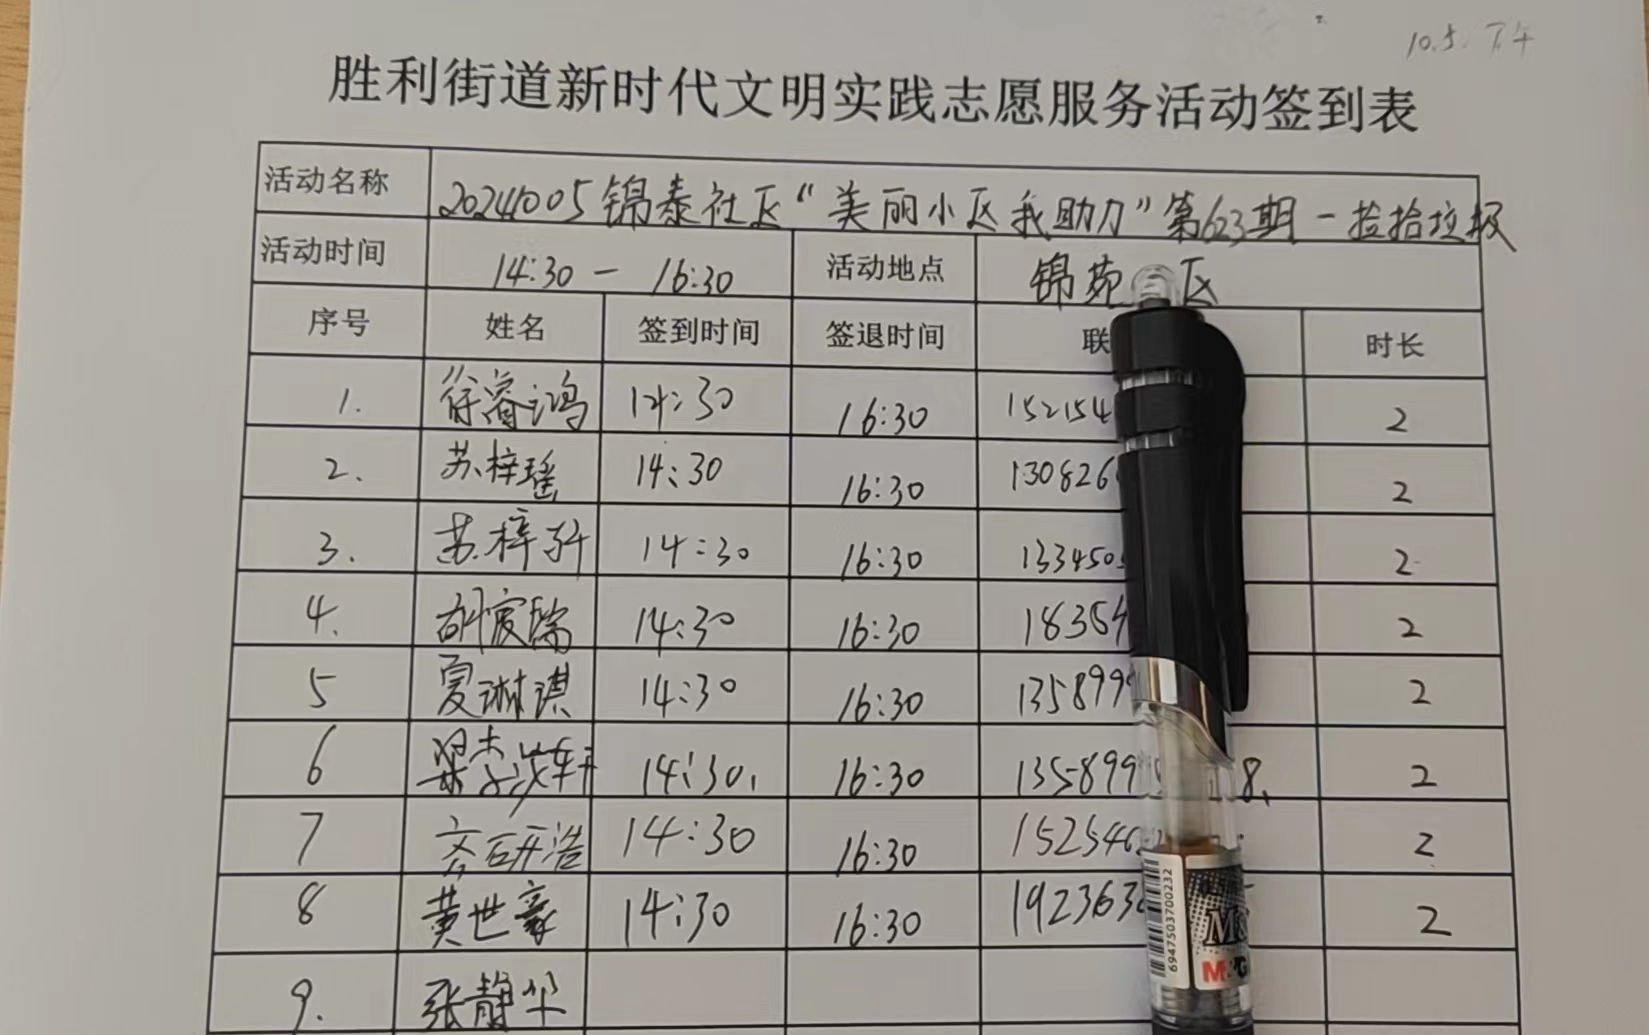 10.5. 下午
胜利街道新时代文明实践志愿服务活动签到表
活动名称 20241005锦泰社区“美丽小区我助力”第63期-捡拾垃圾
活动时间 14:30 - 16:30 活动地点 锦苑 区
序号 姓名 签到时间 签退时间 联 时长
1. 徐睿鸿 14:30 16:30 152154 2
2. 苏梓瑶 14:30 16:30 130826 2
3. 苏梓轩 14:30 16:30 133450 2
4. 胡宸瑞 14:30 16:30 18354 2
5 夏琳淇 14:30 16:30 135899 2
6 14:30 16:30 135899 8 2
7 齐研浩 14:30 16:30 15254 2
8 黄世豪 14:30 16:30 192363 2
9. 张静华
6947503700232
M
M&G